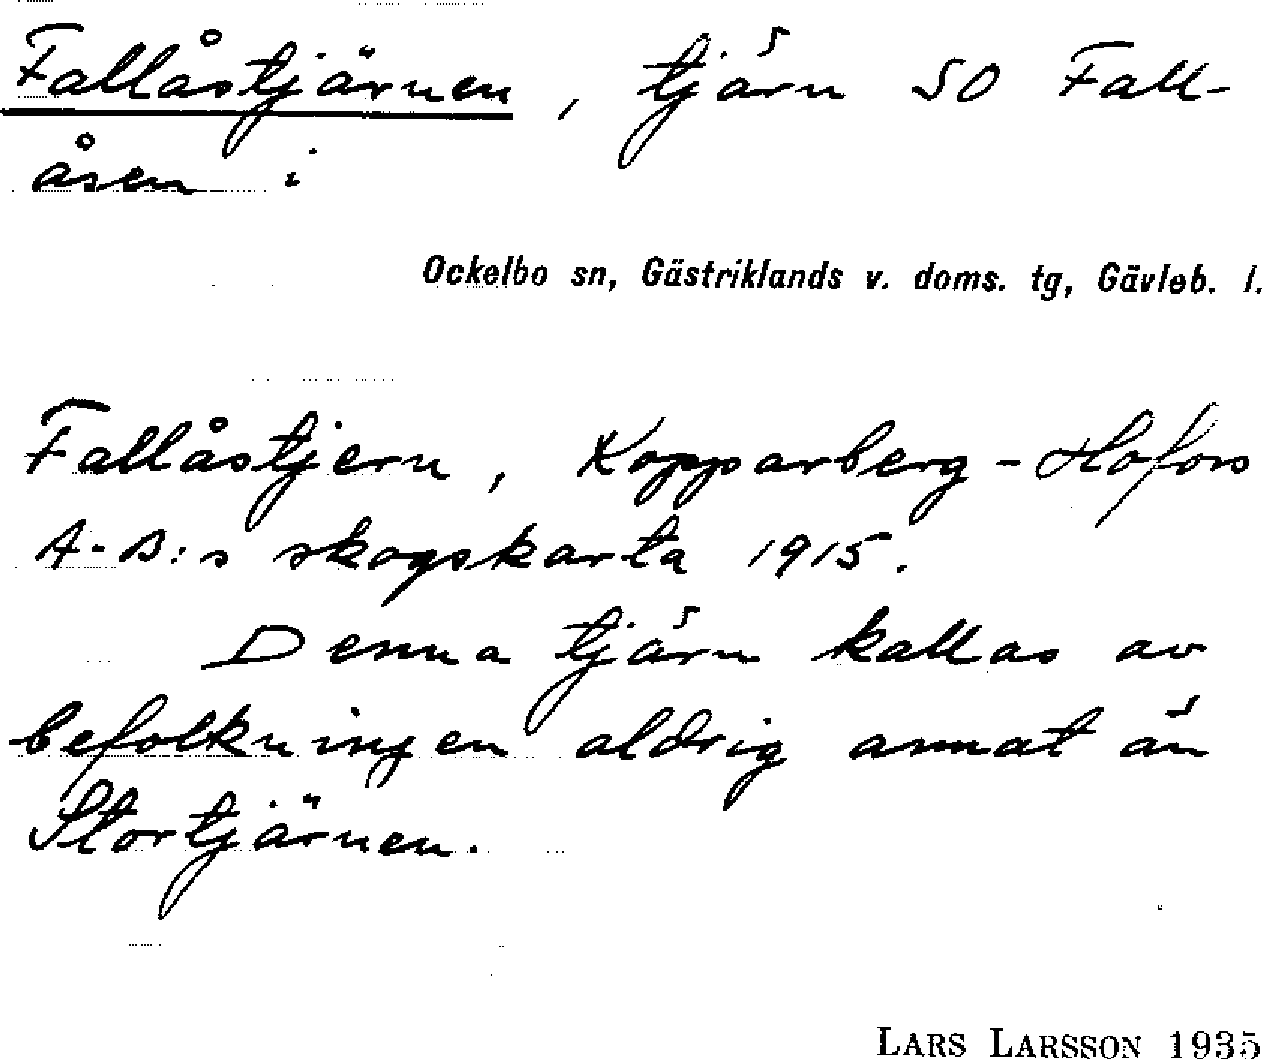 Fallåstjärnen, tjärn SO Fall-
åsen i
Ockelbo sn, Gästriklands v. doms. tg, Gävleb. l.
Fallåstjern, Kopparberg-Hofors
A.-B:s skogskarta 1915.
Denna tjärn kallas av
befolkningen aldrig annat än
Stortjärnen.
LARS LARSSON 1935